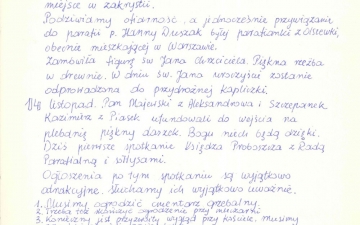 miejsce w zakrystii.
Podziwiamy ofiarność, a jednocześnie przywiązanie
do parafii p. Hanny Duszak byłej parafianki z Olszewki,
obecnie mieszkającej w Warszawie.
Zamówiła figurę św. Jana Chrzciciela. Piękna rzeźba
w drewnie. W dniu św. Jana uroczyście zostanie
odprowadzona do przydrożnej kapliczki.
Listopad. Pan Majewski z Aleksandrowa i Szczepanek
Kazimierz z Piasek ufundowali do wejścia na
plebanię piękny daszek. Bogu niech będą dzięki.
Dziś pierwsze spotkanie Księdza Proboszcza z Radą
Parafialną i sołtysami.
Ogłoszenia po tym spotkaniu są wyjątkowo
atrakcyjne. Słuchamy ich wyjątkowo uważnie.
1. Musimy ogrodzić cmentarz grzebalny.
2. Trzeba też skończyć ogrodzenie przy
3. Konieczny jest przyzwoity wygląd przy kościele, musimy